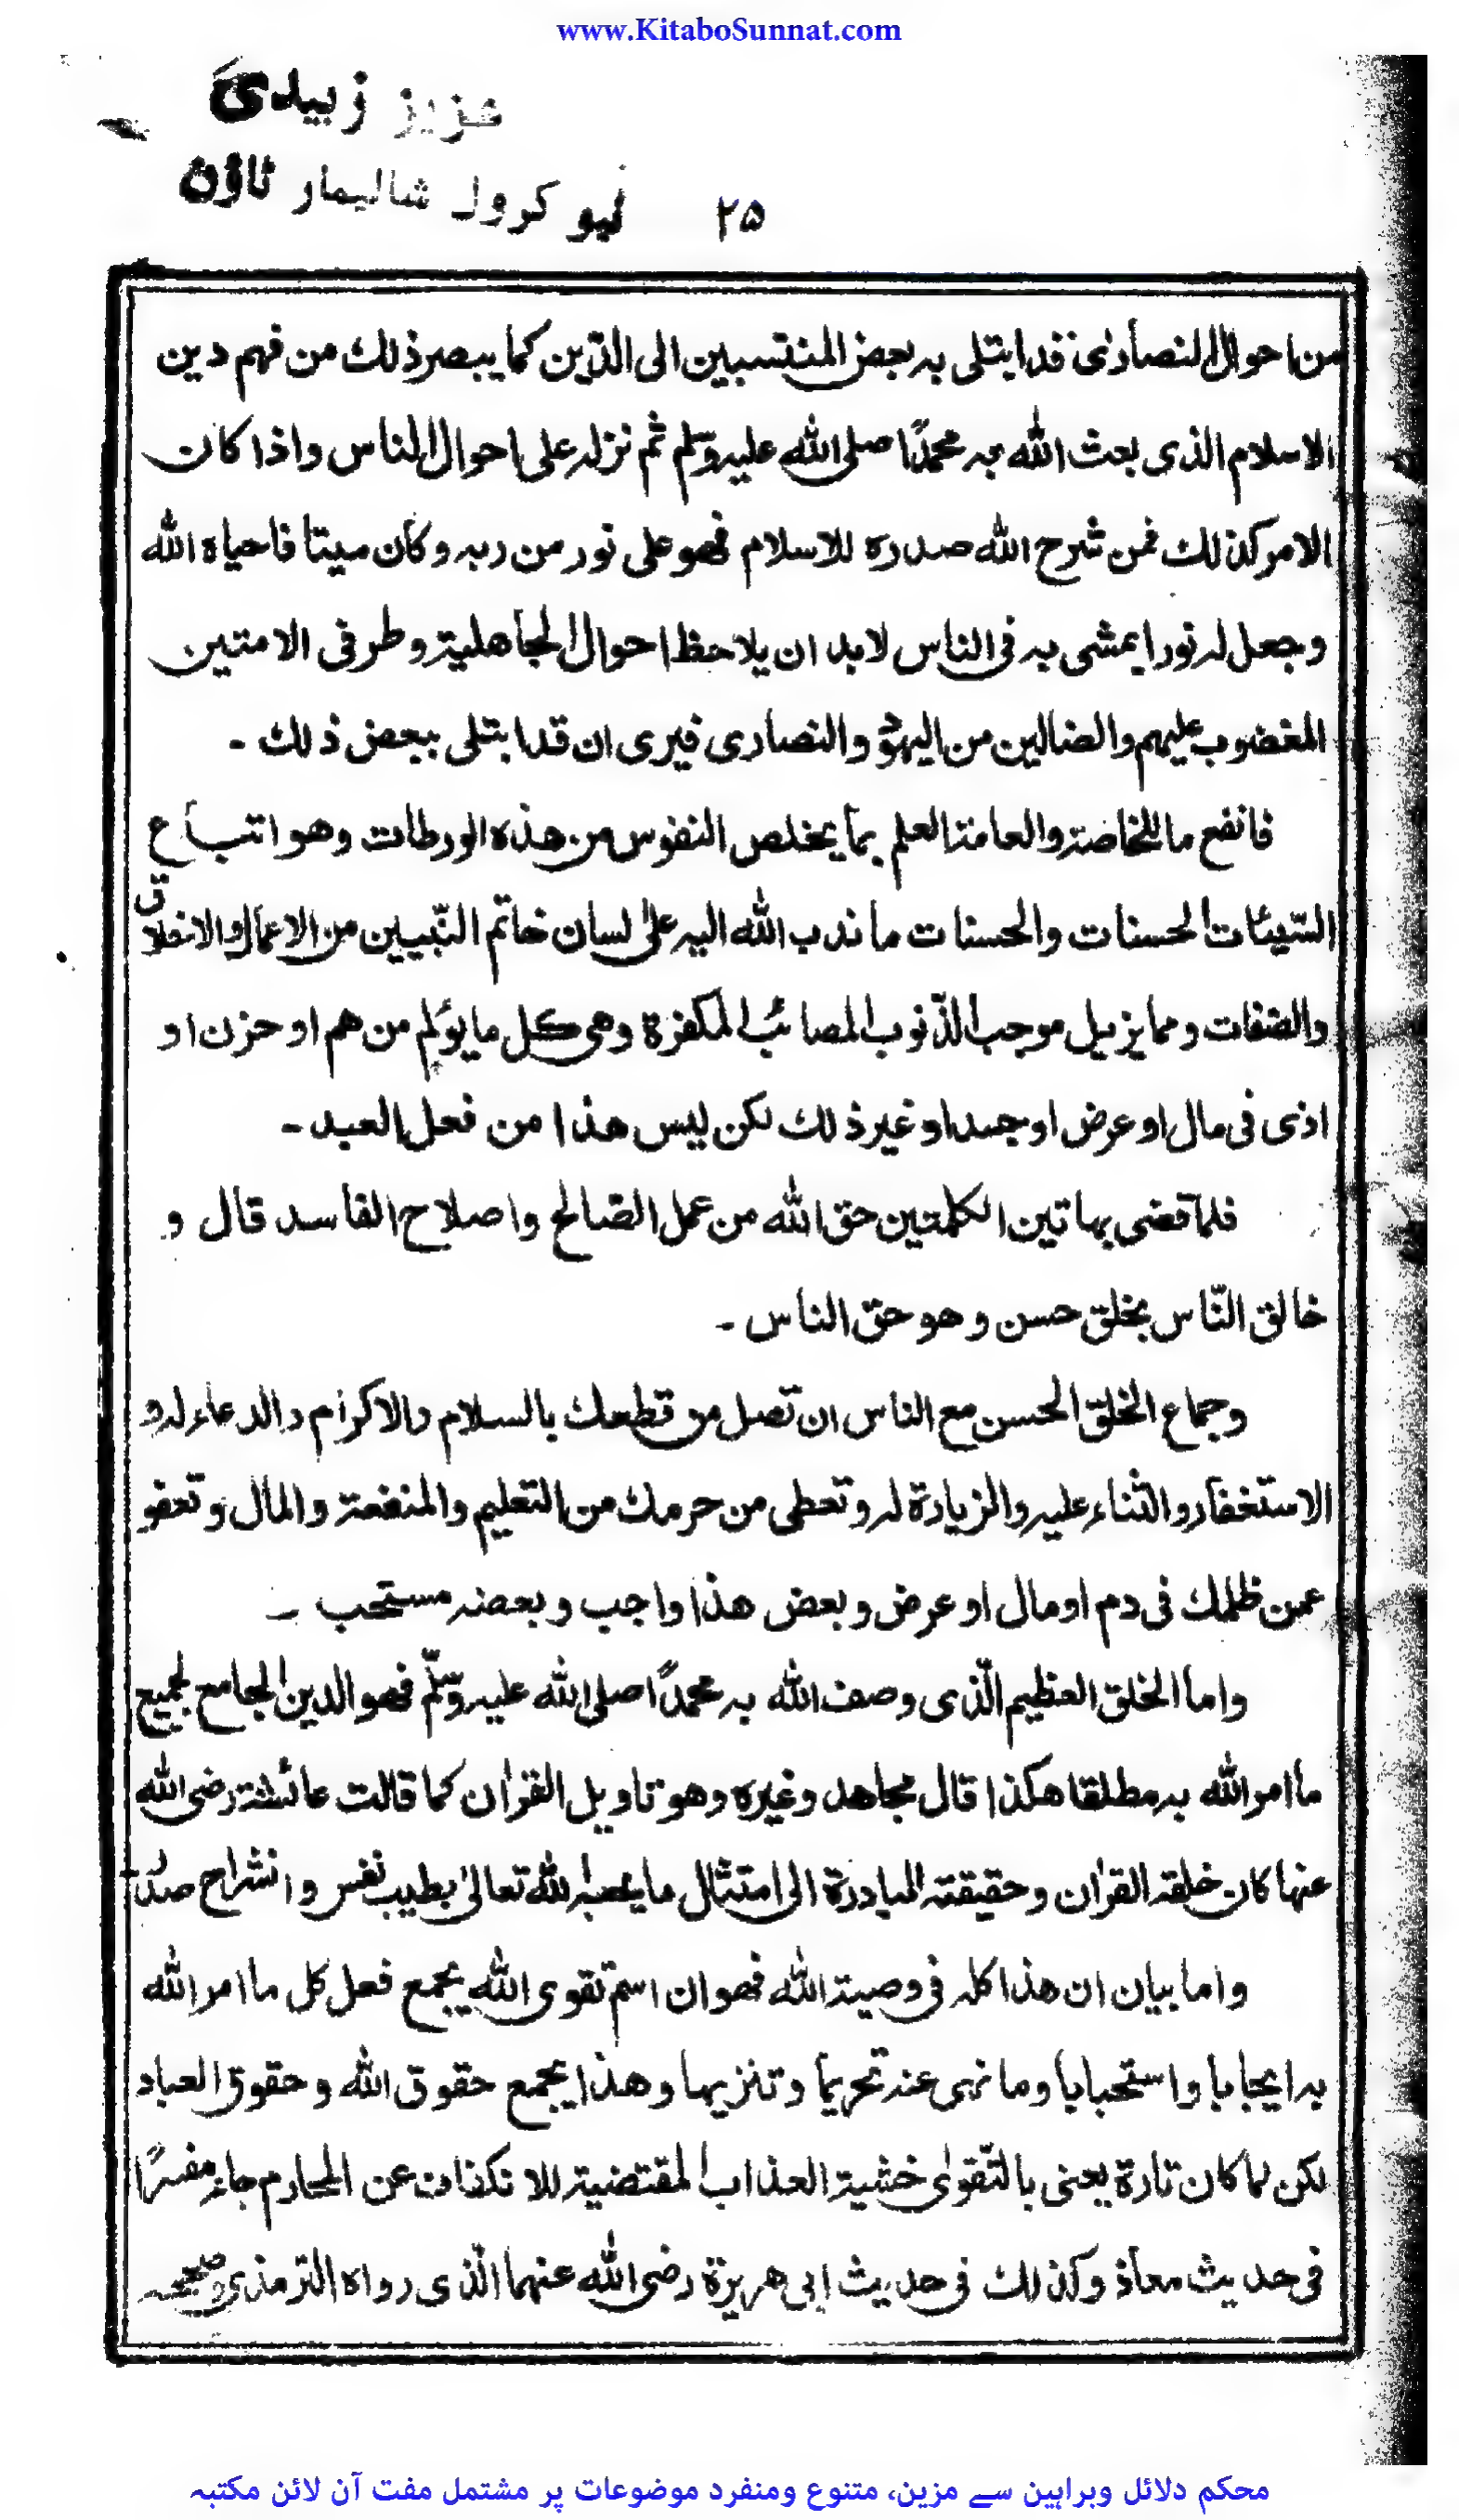 www.KitaboSunnat.com
عزیز زبیدی
نیو کرول شالیمار ٹاؤن
۲۵
من احوال النصاریٰ قد ابتلی به بعض المنتسبین الی الدّین کما یبصر ذلك من فهم دین
الاسلام الذی بعث الله به محمدًا صلی الله علیه وسّلم ثم نزله علی احوال الناس واذا كان
الامر كذلك فمن شرح الله صدره للاسلام فهو علی نور من ربه وكان میتا فاحیاه الله
وجعل له نورا یمشی به فی الناس لابد ان یلاحظ احوال الجاهلیة وطرفی الامتین
المغضوب علیهم والضالین من الیهود والنصاری فیری ان قد ابتلی ببعض ذلك ۔
فانفع ما للخاصة والعامة العلم بما یخلص النفوس من هذه الورطات وهو اتباع
السّیئات الحسنات والحسنات ما ندب الله الیه علیٰ لسان خاتم النّبیین من الاعمال والاخلاق
والصّفات ومما یزیل موجب الذّنوب المصائب المكفرة وهی كل ما یؤلم من هم او حزن او
اذی فی مال او عرض او جسد او غیر ذلك لكن لیس هذا من فعل العبد ۔
فلما قضی بهاتین الكلمتین حق الله من عمل الصّالح واصلاح الفاسد قال و
خالق النّاس بخلق حسن وهو حق الناس ۔
وجماع الخلق الحسن مع الناس ان تصل من قطعك بالسلام والاكرام والدعاء له و
الاستغفار والثناء علیه والزیادة له وتعطی من حرمك من التعلیم والمنفعة والمال وتعفو
عمن ظلمك فی دم او مال او عرض وبعض هذا واجب وبعضه مستحب ۔
واما الخلق العظیم الّذی وصف الله به محمدًا صلی الله علیه وسّلّم فهو الدین الجامع لجمیع
ما امر الله به مطلقا هكذا قال مجاهد وغیره وهو تاویل القراٰن كما قالت عائشة رضی الله
عنها كان خلقه القراٰن وحقیقته المبادرة الی امتثال ما یحبه الله تعالیٰ بطیب نفس وانشراح صدر
واما بیان ان هذا كله فی وصیة الله فهو ان اسم تقوی الله یجمع فعل كل ما امر الله
به ایجابا واستحبابا وما نهی عنه تحریما وتنزیها وهذا یجمع حقوق الله وحقوق العباد
لكن لما كان تارة یعنی بالتّقویٰ خشیة العذاب المقتضیة للانكفاف عن المحارم جاء مفسرًا
فی حدیث معاذ وكذلك فی حدیث ابی هریرة رضی الله عنهما الّذی رواه الترمذی وصححه
محکم دلائل وبراہین سے مزین، متنوع ومنفرد موضوعات پر مشتمل مفت آن لائن مکتبہ